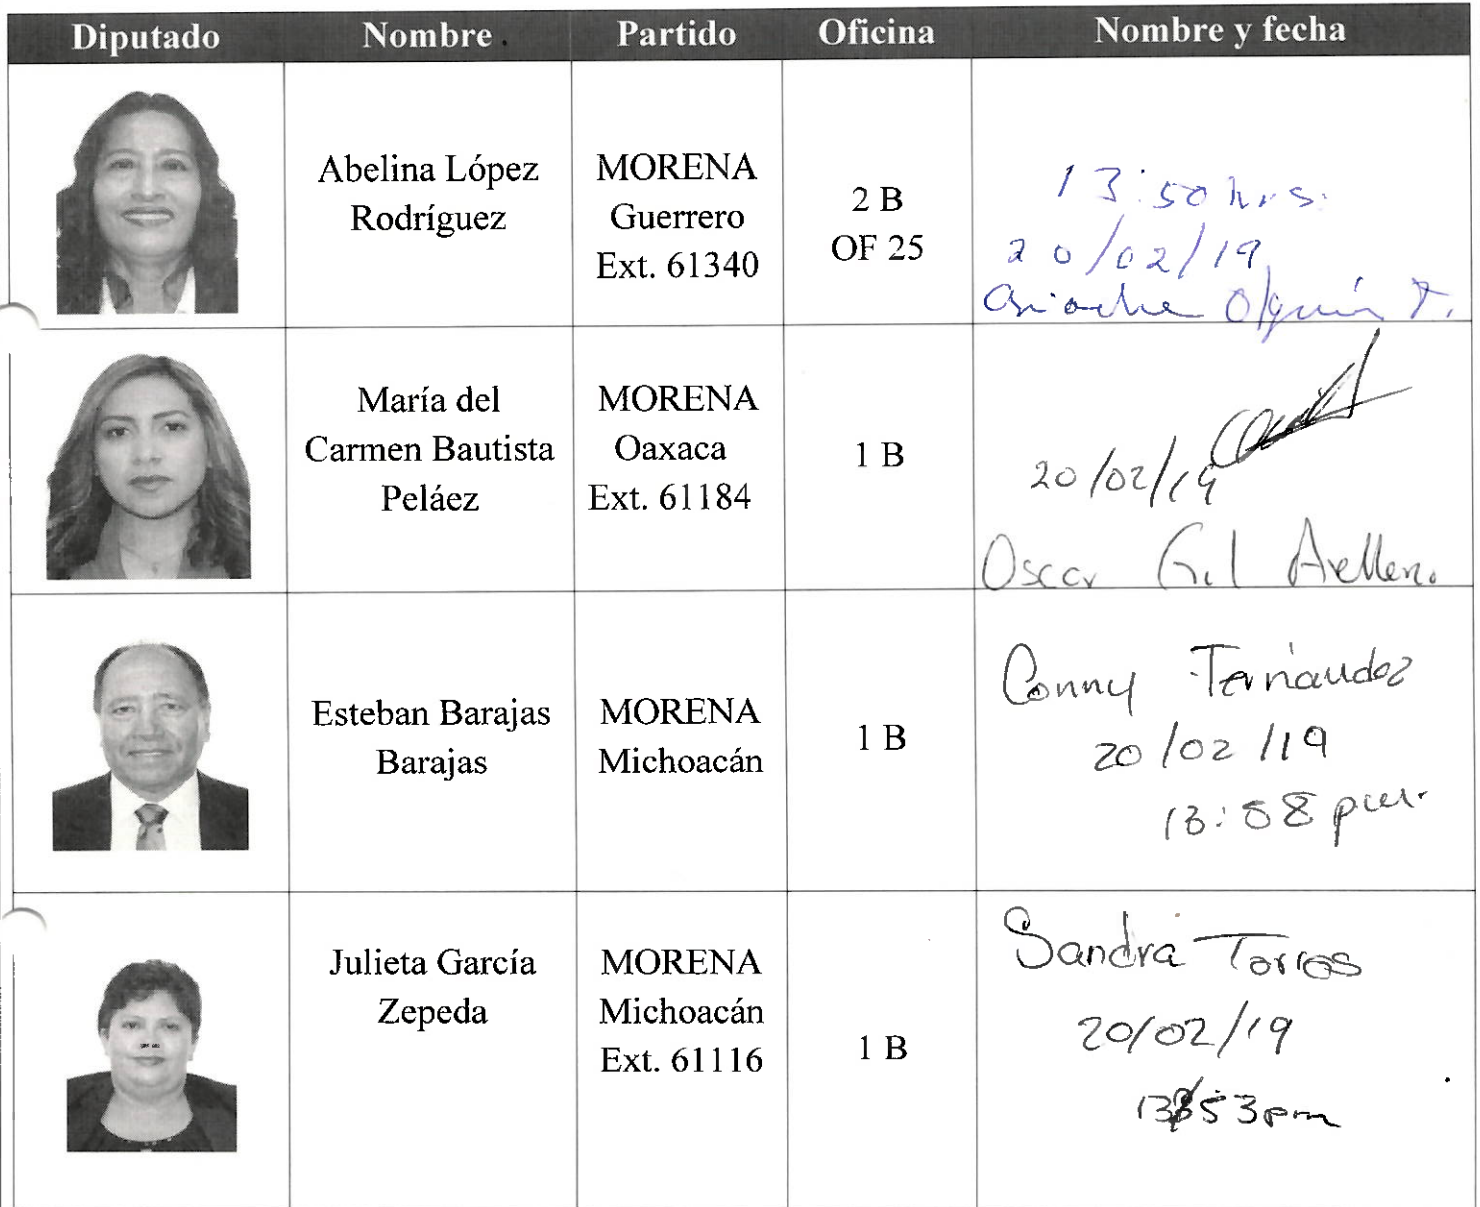 Diputado Nombre Partido Oficina Nombre y fecha
Abelina López
Rodríguez
MORENA
Guerrero
Ext. 61340
2 B
OF 25
13:50 hrs.
20/02/19
Olguín T.
María del
Carmen Bautista
Peláez
MORENA
Oaxaca
Ext. 61184
1 B
20/02/19
Oscar Gil Arellano
Esteban Barajas
Barajas
MORENA
Michoacán
1 B
Conny Fernandez
20/02/19
13:58 pm.
Julieta García
Zepeda
MORENA
Michoacán
Ext. 61116
1 B
Sandra Torres
20/02/19
13:53pm